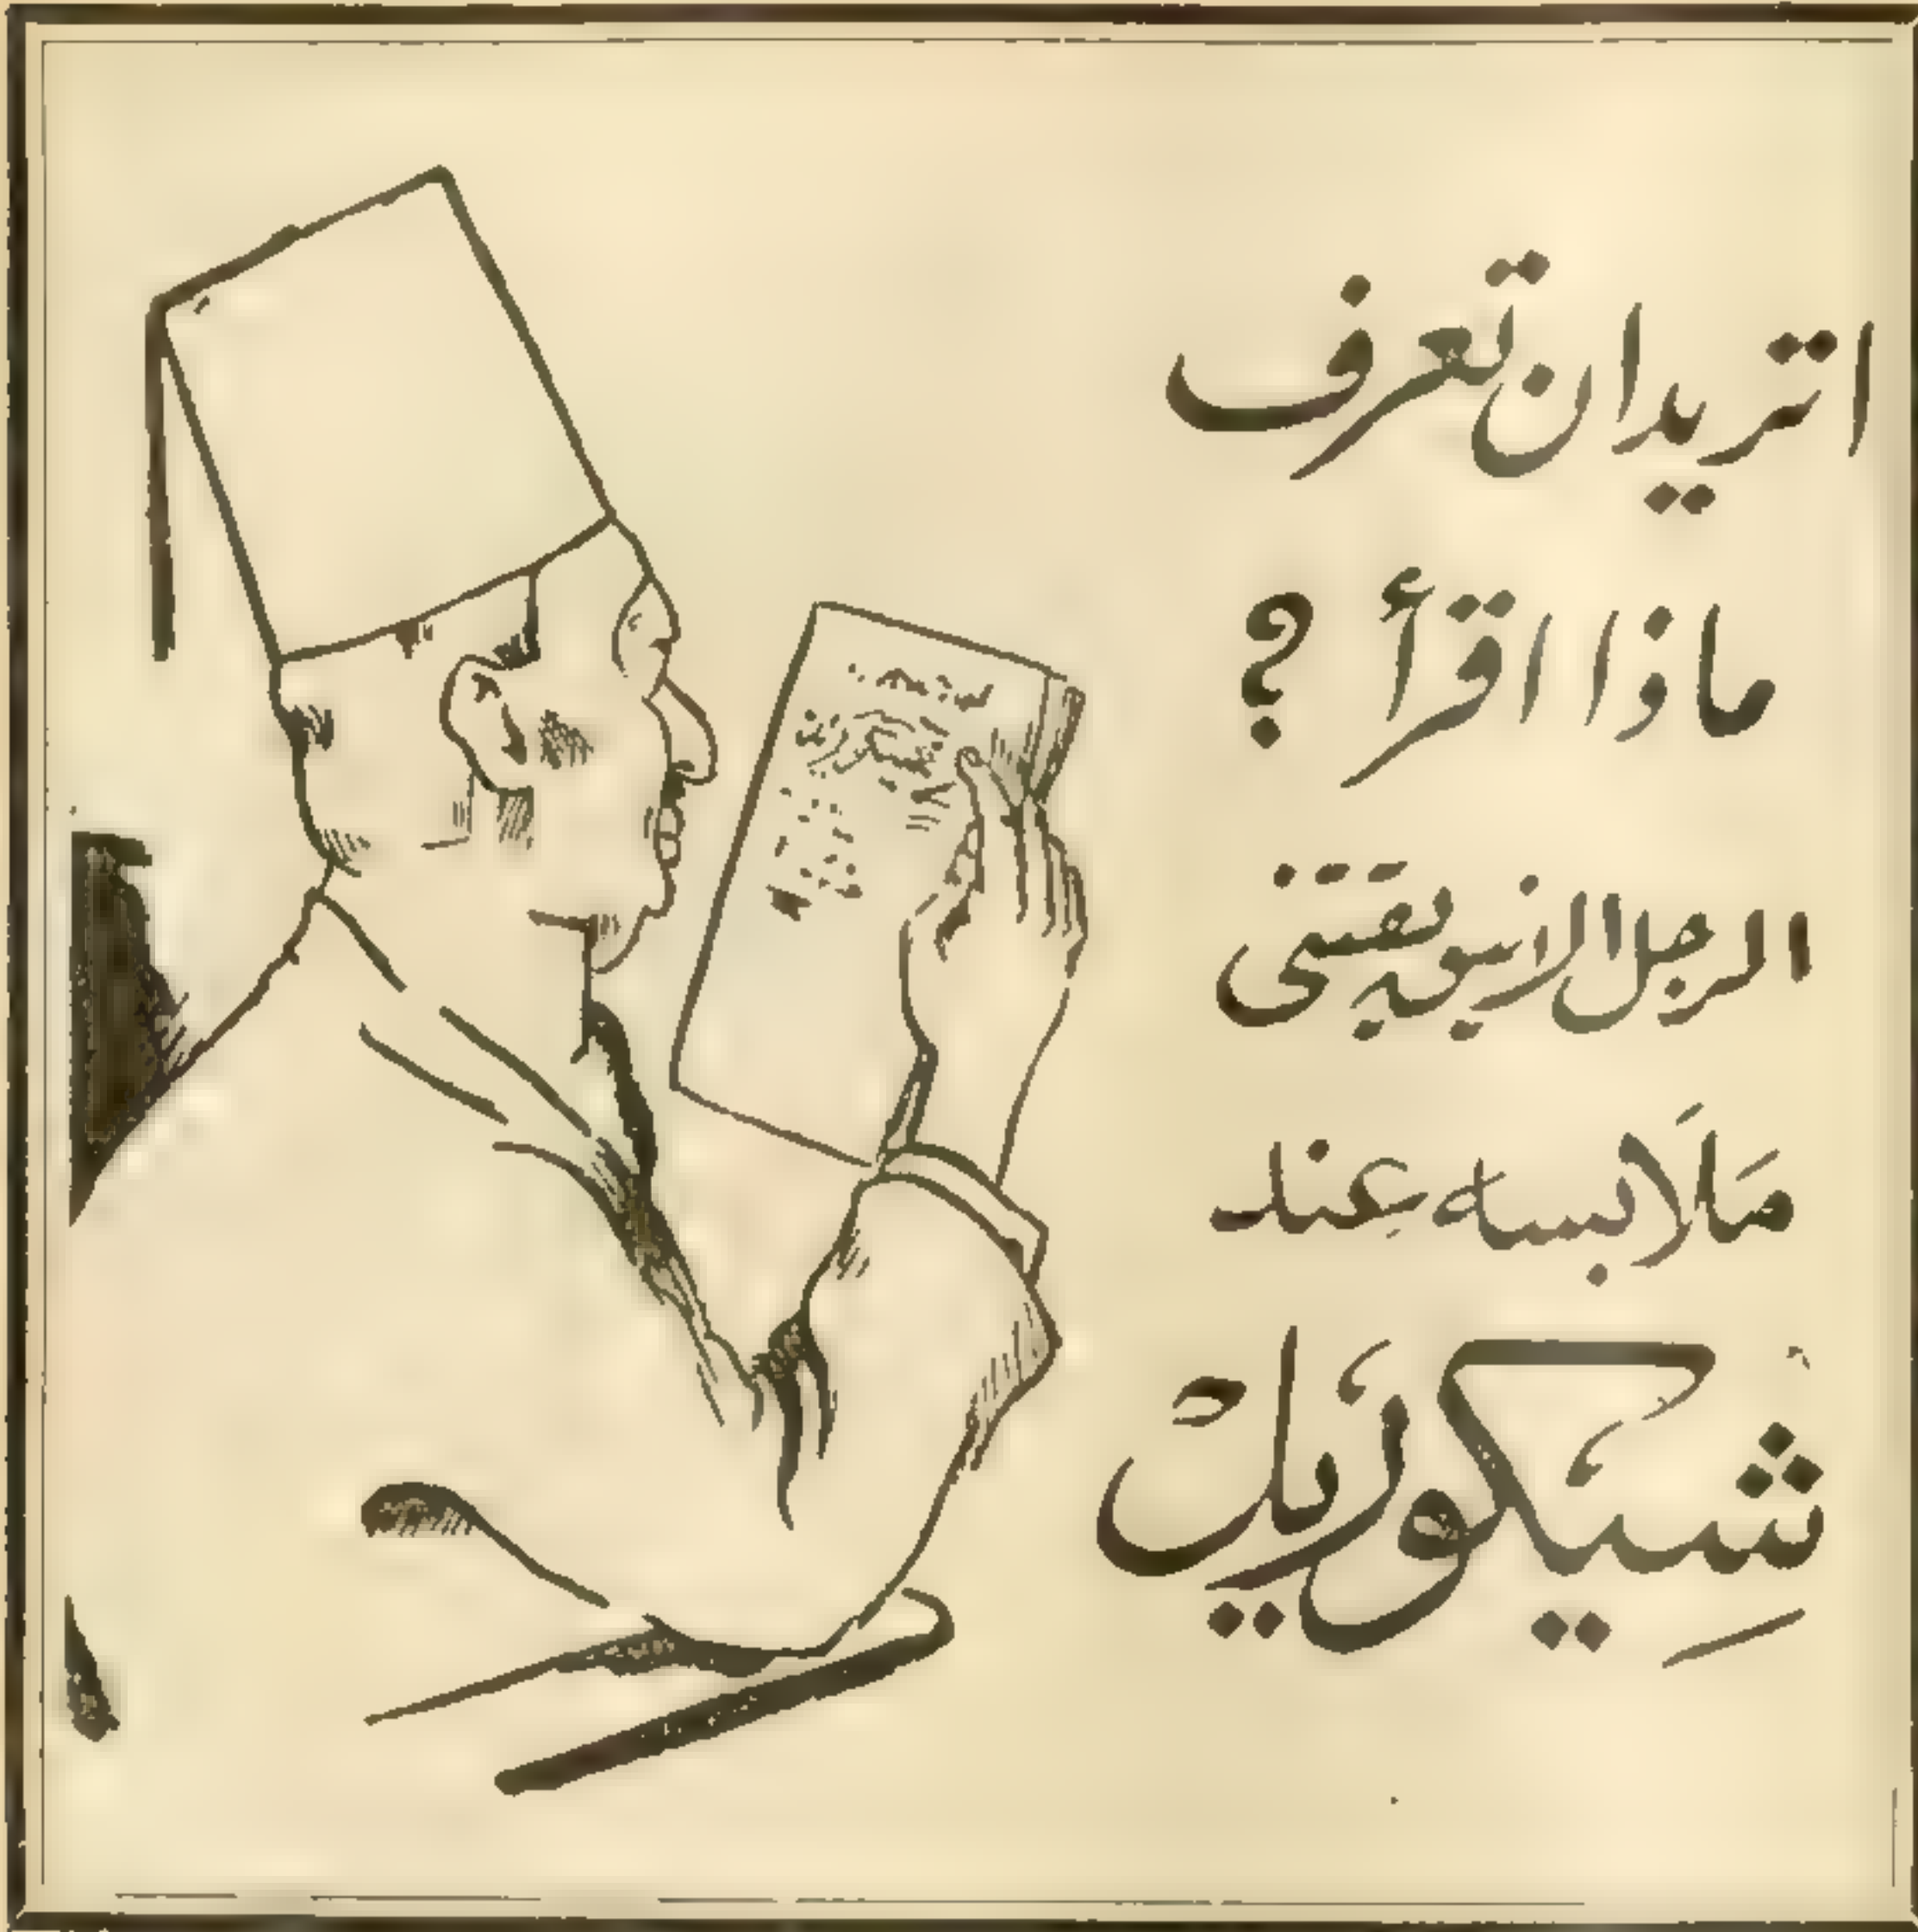 اتريد ان تعرف
ماذا اقرأ ؟
الرجل الانيق يقتنى
مَلَابسه عند
شيكوريل